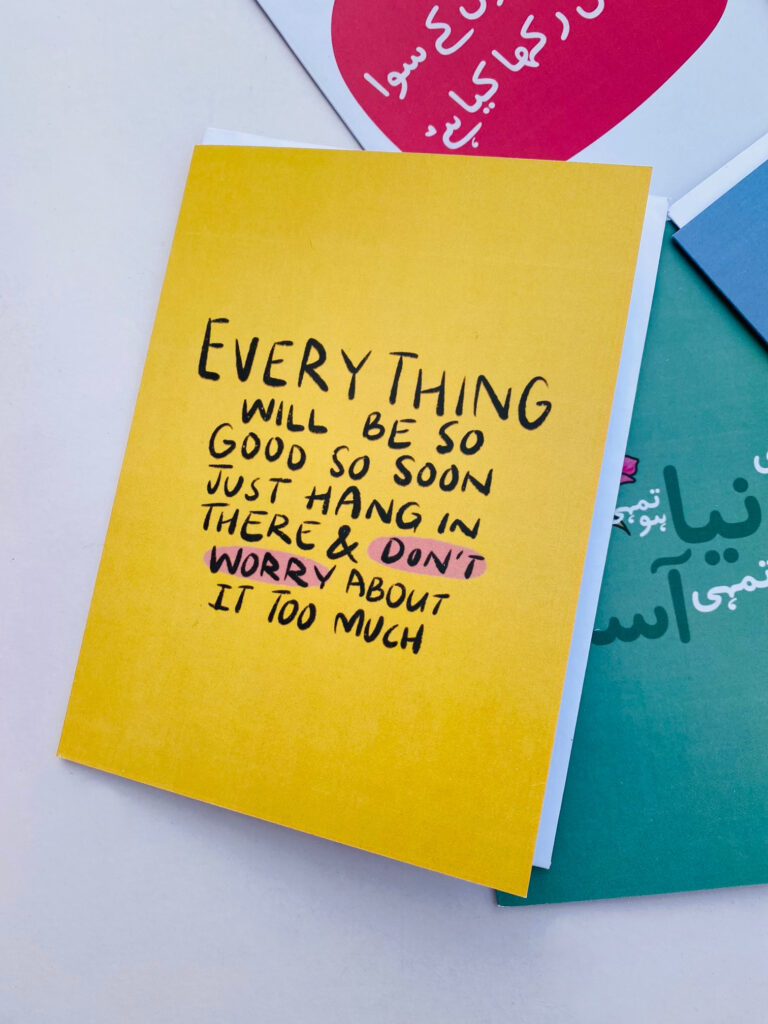 کے سوا
رکھا کیا ہے
EVERYTHING
WILL BE SO
GOOD SO SOON
JUST HANG IN
THERE & DON'T
WORRY ABOUT
IT TOO MUCH
تمہی
ہو
تمہی